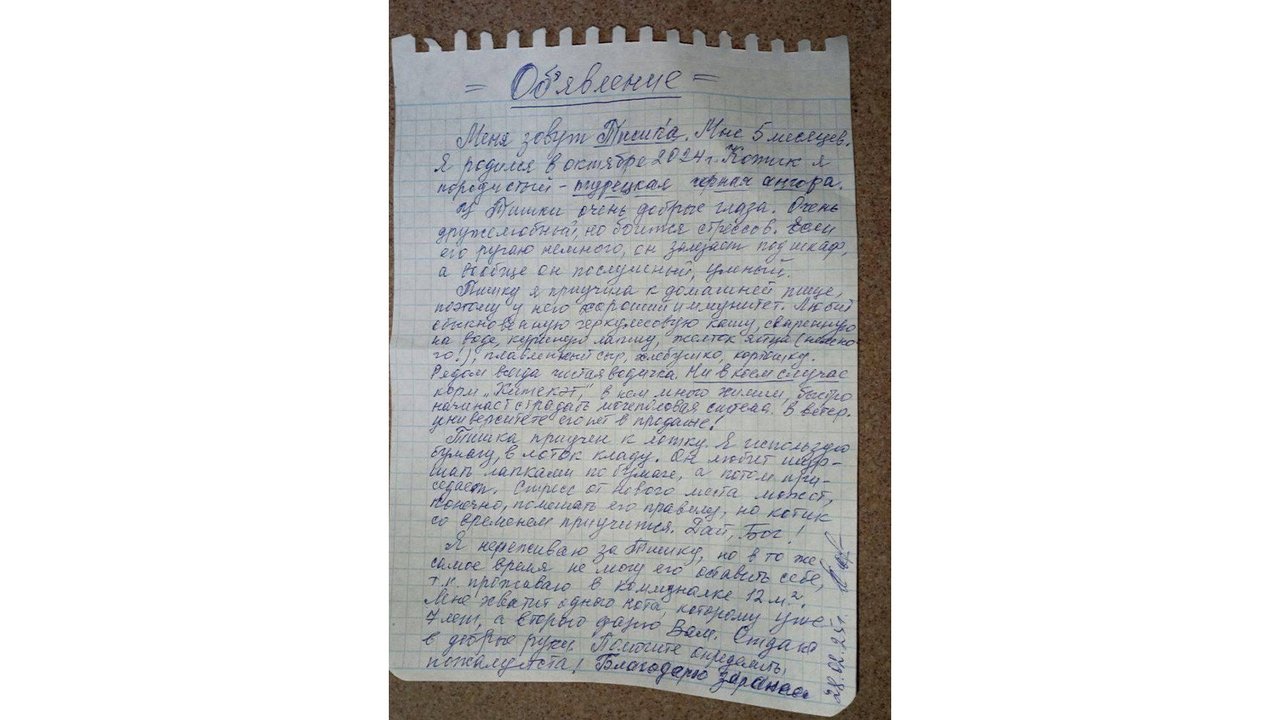 = Объявление =
Меня зовут Тишка. Мне 5 месяцев.
Я родился в октябре 2024 г. Котик я
породистый - турецкая черная ангора.
У Тишки очень добрые глаза. Очень
дружелюбный, но боится стрессов. Если
его ругаю немного, он залезает под шкаф,
а вообще он послушный, умный.
Тишку я приучила к домашней пище,
поэтому у него хороший иммунитет. Любит
обыкновенную геркулесовую кашу, сваренную
на воде, куриную лапшу, желток яйца (немно-
го!), плавленный сыр, хлебушко, картошку.
Рядом всегда чистая водичка. Ни в коем случае
корм „Китекэт", в нем много химии, быстро
начинает страдать мочеполовая система. В ветер.
университете его нет в продаже!
Тишка приучен к лотку. Я использую
бумагу, в лоток кладу. Он любит шур-
шать лапками по бумаге, а потом при-
седает. Стресс от нового места может,
конечно, помешать его правилу, но котик
со временем приучится. Дай, Бог!
Я переживаю за Тишку, но в то же
самое время не могу его оставить себе,
т.к. проживаю в коммуналке 12 м².
Мне хватит одного кота, которому уже
7 лет, а второго дарю Вам. Отдаю
в добрые руки. Помогите определить,
пожалуйста! Благодарю заранее
28.02.25г.